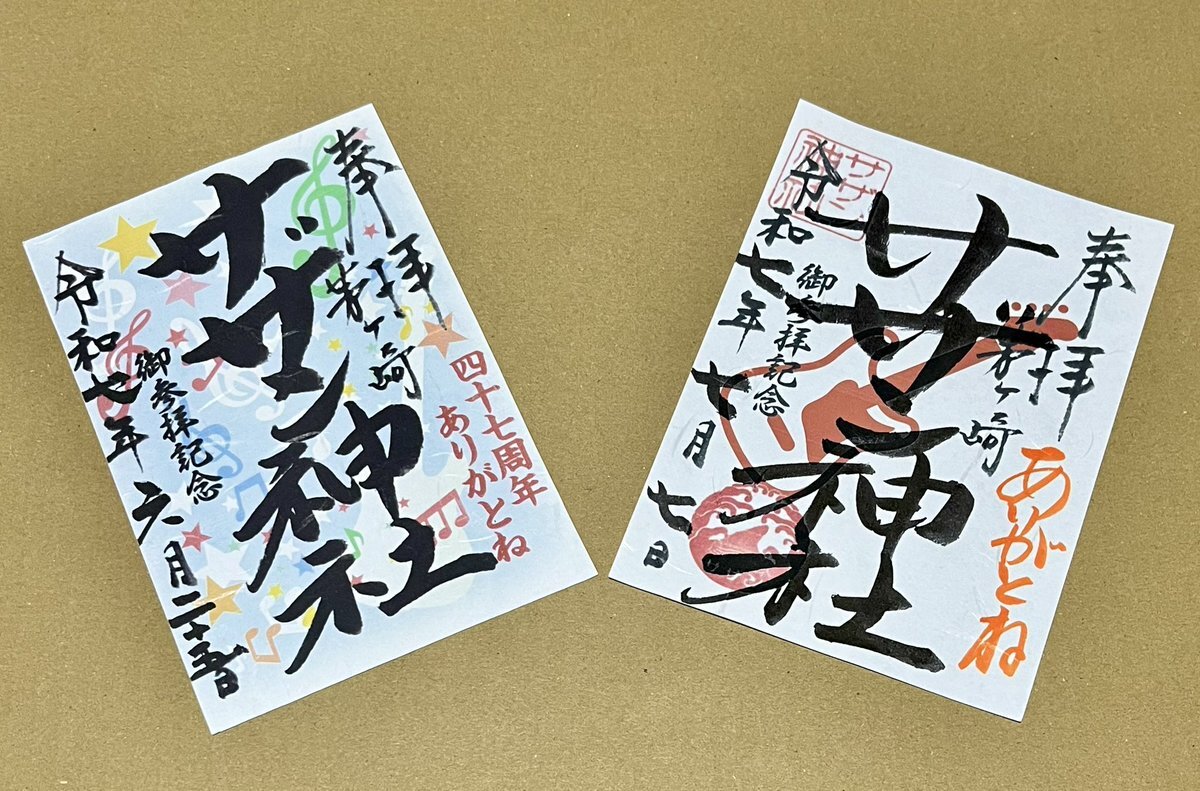 奉拝
茅ヶ崎
四十七周年
ありがとね
サザン神社
御参拝記念
令和七年 六月二十五日
奉拝
茅ヶ崎
ありがとね
サザン神社
御参拝記念
令和七年 七月七日
サザン
神社